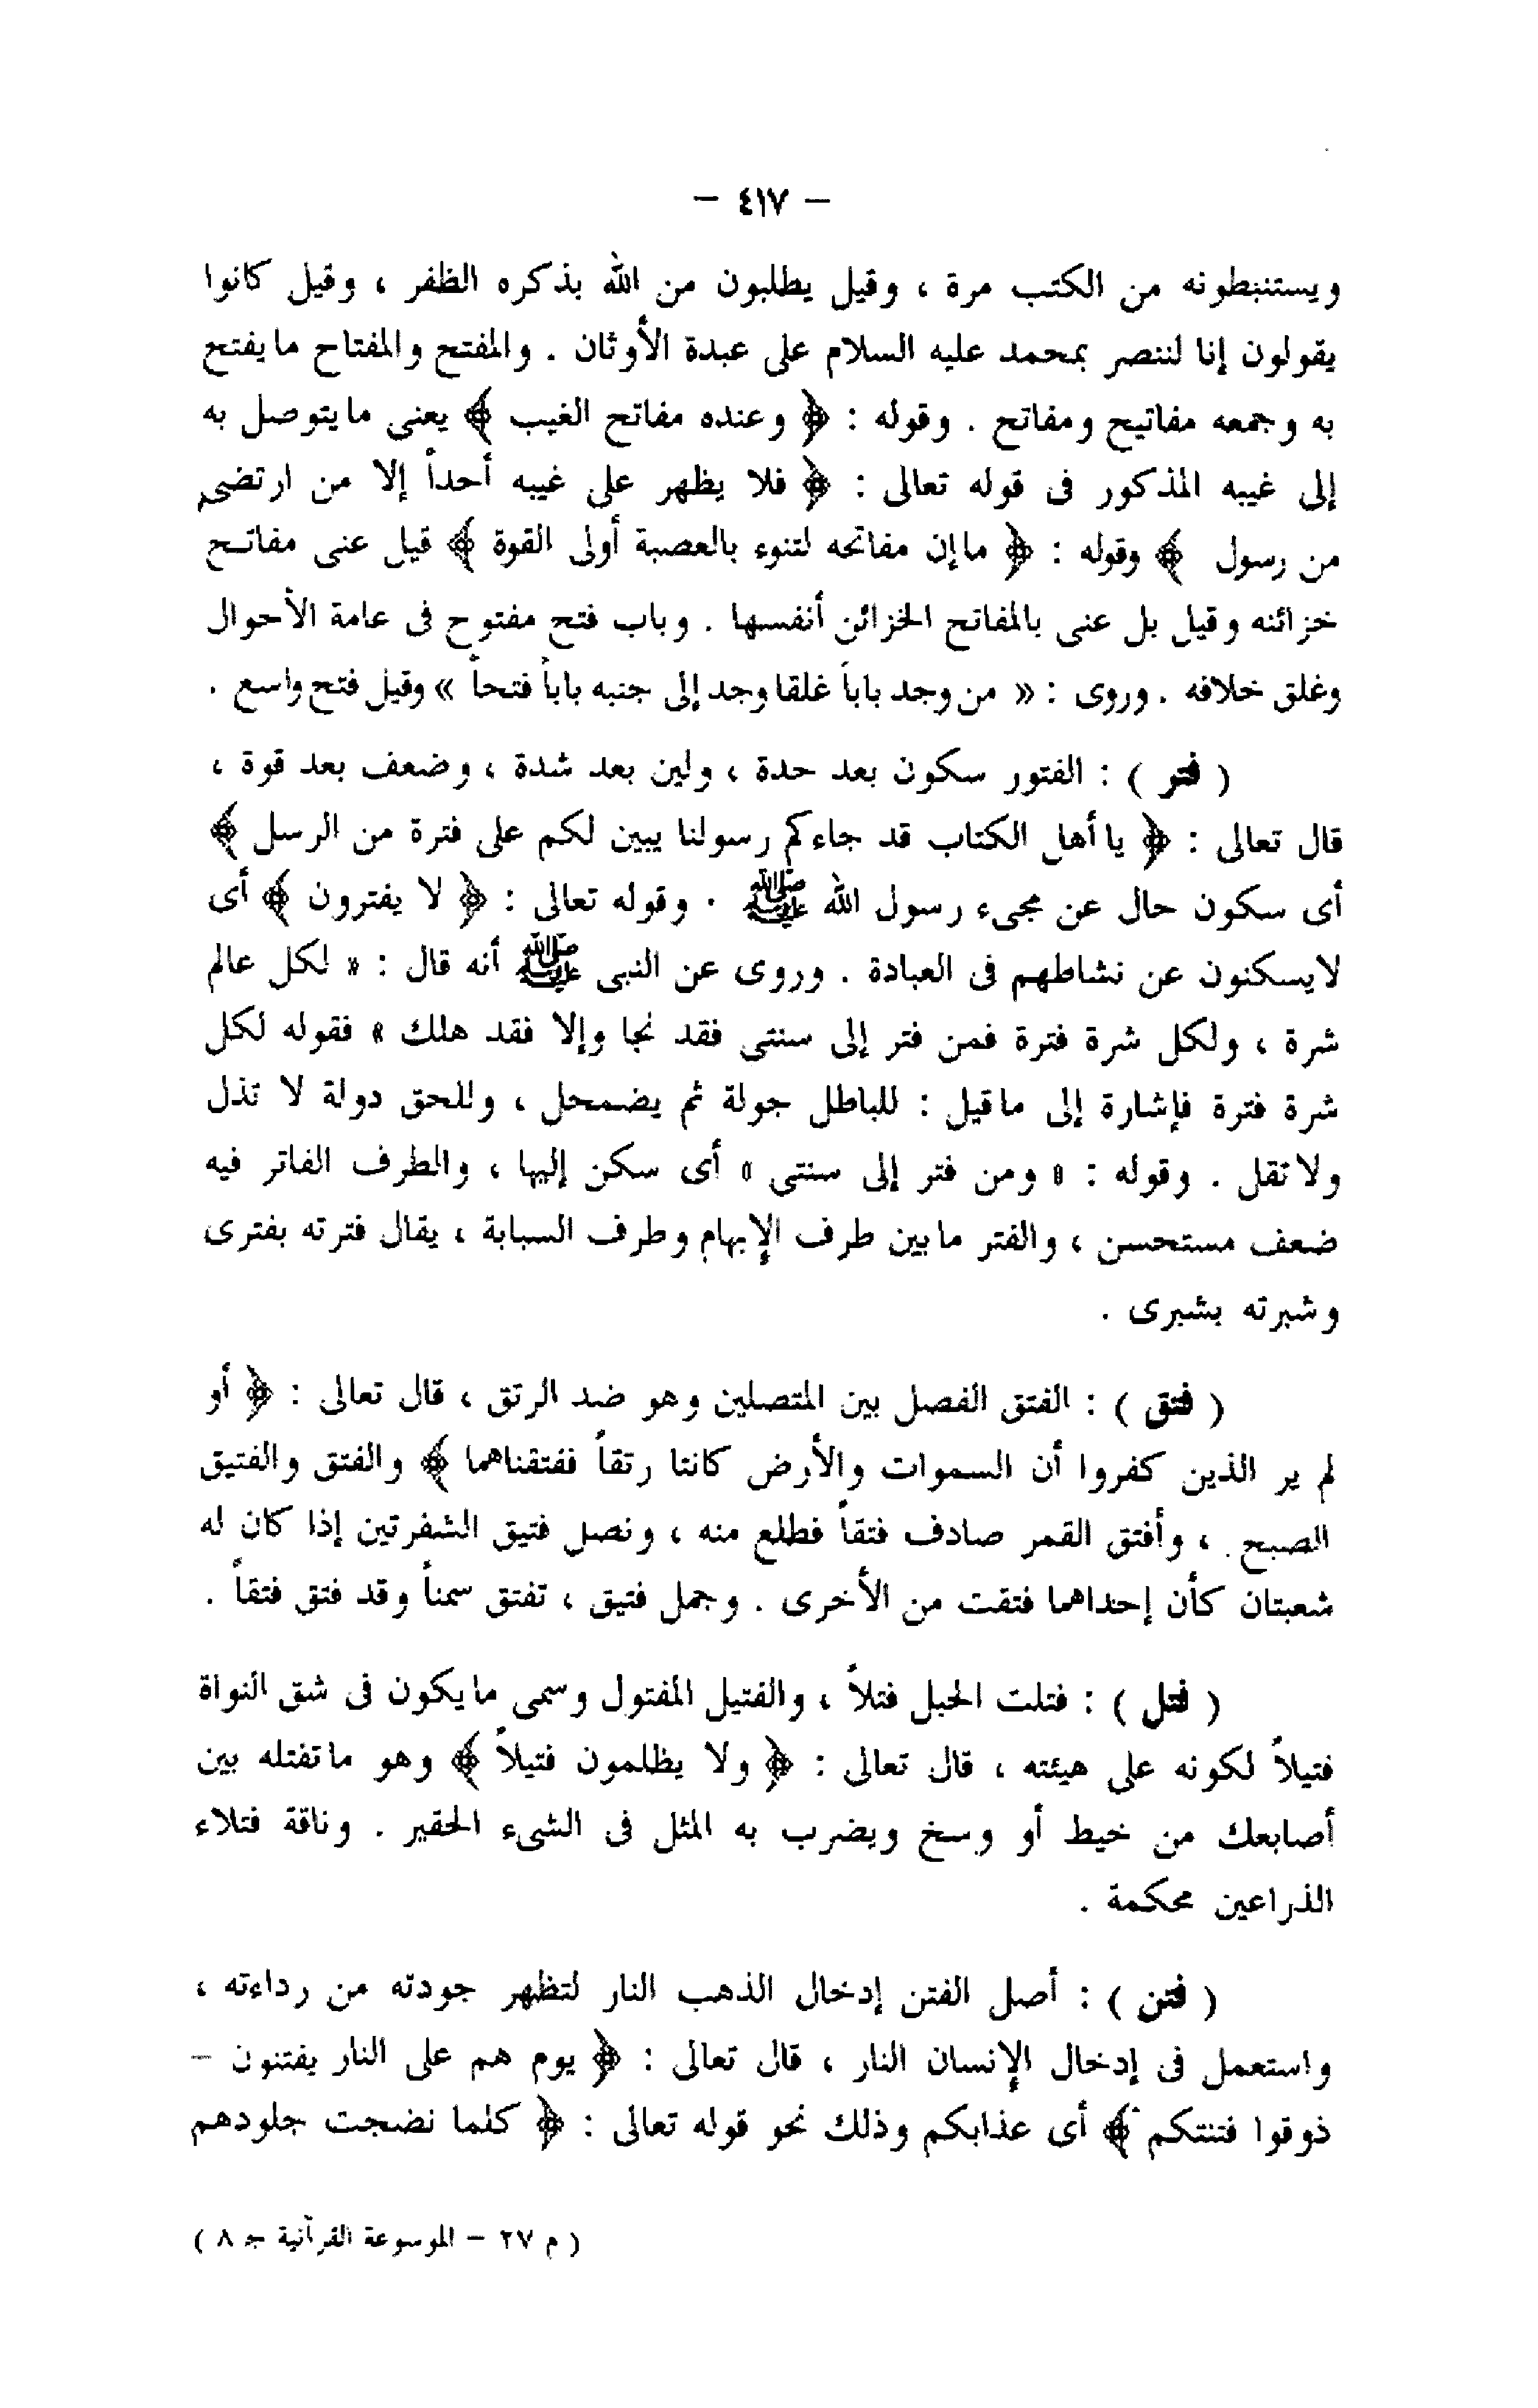 – ٤١٧ –
ويستنبطونه من الكتب مرة ، وقيل يطلبون من الله بذكره الظفر ، وقيل كانوا
يقولون إنا لننصر بمحمد عليه السلام على عبدة الأوثان . والمفتح والمفتاح مايفتح
به وجمعه مفاتيح ومفاتح . وقوله : ﴿ وعنده مفاتح الغيب ﴾ يعنى مايتوصل به
إلى غيبه المذكور فى قوله تعالى : ﴿ فلا يظهر على غيبه أحداً إلا من ارتضى
من رسول ﴾ وقوله : ﴿ ماإن مفاتحه لتنوء بالعصبة أولى القوة ﴾ قيل عنى مفاتح
خزائنه وقيل بل عنى بالمفاتح الخزائن أنفسها . وباب فتح مفتوح فى عامة الأحوال
وغلق خلافه . وروى : « من وجد باباً غلقا وجد إلى جنبه باباً فتحاً » وقيل فتح واسع .
( فتر ) : الفتور سكون بعد حدة ، ولين بعد شدة ، وضعف بعد قوة ،
قال تعالى : ﴿ ياأهل الكتاب قد جاءكم رسولنا يبين لكم على فترة من الرسل ﴾
أى سكون حال عن مجىء رسول الله ﷺ . وقوله تعالى : ﴿ لا يفترون ﴾ أى
لايسكنون عن نشاطهم فى العبادة . وروى عن النبى ﷺ أنه قال : « لكل عالم
شرة ، ولكل شرة فترة فمن فتر إلى سنتى فقد نجا وإلا فقد هلك » فقوله لكل
شرة فترة فإشارة إلى ماقيل : للباطل جولة ثم يضمحل ، وللحق دولة لا تذل
ولاتقل . وقوله : « ومن فتر إلى سنتى » أى سكن إليها ، والطرف الفاتر فيه
ضعف مستحسن ، والفتر مابين طرف الإبهام وطرف السبابة ، يقال فترته بفترى
وشبرته بشبرى .
( فتق ) : الفتق الفصل بين المتصلين وهو ضد الرتق ، قال تعالى : ﴿ أو
لم ير الذين كفروا أن السموات والأرض كانتا رتقاً ففتقناهما ﴾ والفتق والفتيق
الصبح . ، وأفتق القمر صادف فتقاً فطلع منه ، ونصل فتيق الشفرتين إذا كان له
شعبتان كأن إحداهما فتقت من الأخرى . وجمل فتيق ، تفتق سمناً وقد فتق فتقاً .
( فتل ) : فتلت الحبل فتلاً ، والفتيل المفتول وسمى مايكون فى شق النواة
فتيلاً لكونه على هيئته ، قال تعالى : ﴿ ولا يظلمون فتيلاً ﴾ وهو ماتفتله بين
أصابعك من خيط أو وسخ ويضرب به المثل فى الشىء الحقير . وناقة فتلاء
الذراعين محكمة .
( فتن ) : أصل الفتن إدخال الذهب النار لتظهر جودته من رداءته ،
واستعمل فى إدخال الإنسان النار ، قال تعالى : ﴿ يوم هم على النار يفتنون –
ذوقوا فتنتكم ﴾ أى عذابكم وذلك نحو قوله تعالى : ﴿ كلما نضجت جلودهم
( م ٢٧ – الموسوعة القرآنية جـ ٨ )